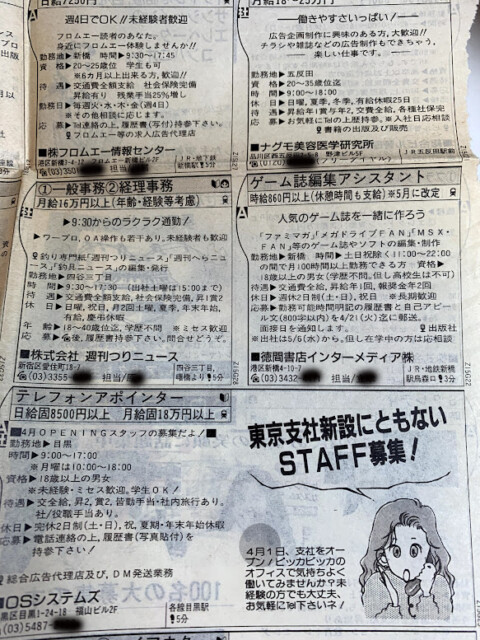 日給7250円
週4日でOK!!未経験者歓迎
フロムエー読者のあなた。
身近にフロムエー体験しませんか!!
勤務地▶新橋 時間▶9:30〜17:45
資格▶20〜25歳位 学生も可
※6カ月以上出来る方、歓迎!!
待遇▶交通費全額支給 社会保険完備
昇給有り 残業手当25%増し
勤務日▶毎週火・水・木・金(週4日)
※その他相談に応じます。
応募▶Tel連絡の上、履歴書(写付)持参下さい。
フロムエー等の求人広告代理店
■㈱フロムエー情報センター
港区新橋
JR・地下鉄
新橋駅
月給18〜25万円
―働きやすさいっぱい!―
広告企画制作に興味のある方、大歓迎!!
チラシや雑誌などの広告制作もできちゃう、
楽しい仕事です。
勤務地▶五反田
資格▶20〜35歳位迄
時間▶9:00〜18:00
休日▶日曜、夏季、冬季、有給休暇25日
待遇▶昇給年1賞与年2、交費全給、各種社保完
応募▶お気軽にTelの上持参。※入社日応相談
書籍の出版及び販売
■ナグモ美容医学研究所
品川区西五反田
JR五反田駅前
①一般事務②経理事務
月給16万円以上(年齢・経験等考慮)
▶9:30からのラクラク通勤!
▶ワープロ、OA操作も若干あり。未経験者も歓迎
釣り専門紙『週刊つりニュース』『週刊へらニュース』『釣具ニュース』の編集・発行
勤務地▶四谷三丁目
時間▶9:30〜17:30 (出社土曜は15:00まで)
待遇▶交通費全額支給、社会保険完備、昇1賞2
休日▶日曜、祝日、月2回土曜、夏季、年末年始、
有給、慶弔休暇
年齢▶18〜40歳位迄、学歴不問 ※ミセス歓迎
応募▶後、履歴書持参下さい。問合せどうぞ。
■株式会社 週刊つりニュース
新宿区愛住町18-7
☎(03)3355 担当/
四谷三丁目、
曙橋より5分
ゲーム誌編集アシスタント
時給860円以上(休憩時間も支給)※5月に改定
人気のゲーム誌を一緒に作ろう
「ファミマガ」「メガドライブFAN」「MSX・
FAN」等のゲーム誌やソフトの編集・制作
勤務地▶新橋 時間▶土日祝除く11:00〜22:00
の間で月100時間以上勤務できる方 資格▶
18歳以上の男女(学歴不問、但し高校生は不可)
待遇▶交通費全給、昇給年1回、報奨金年2回
休日▶週休2日制(土・日)、祝日 ※長期歓迎
応募▶勤務可能時間明記の履歴書と自己アピー
ル文(600字以内)を4/21(火)迄に郵送下さい。
面接日を通知します。 出版社
※出社は5/6(水)から、但し在学中の方は応相談
■徳間書店インターメディア㈱
港区新橋4-10-7
☎(03)3432 担当/
JR・地鉄新橋
駅烏森口3分
テレフォンアポインター
日給固8500円以上 月給固18万円以上
■4月OPENINGスタッフの募集だよ!■
勤務地▶目黒
時間▶9:00〜17:00
※月曜は10:00〜18:00
資格▶18歳以上の男女
※未経験・ミセス歓迎、学生OK!
待遇▶交全給、昇2、賞2、皆勤手当・社内旅行あり。
社/役職手当あり。
休日▶完休2日制(土・日)、祝、夏期・年末年始休暇
応募▶電話連絡の上、履歴書(写真貼付)を
持参下さい!
総合広告代理店及び、DM発送業務
■OSシステムズ
目黒区目黒1-24-18 福山ビル2F
☎(03)5487-
各線目黒駅
5分
東京支社新設にともない
STAFF募集!
4月1日、支社をオー
プン!ピッカピッカの
オフィスで気持ちよく
働いてみませんか?未
経験の方でも大丈夫、
お気軽にTel下さいネ!